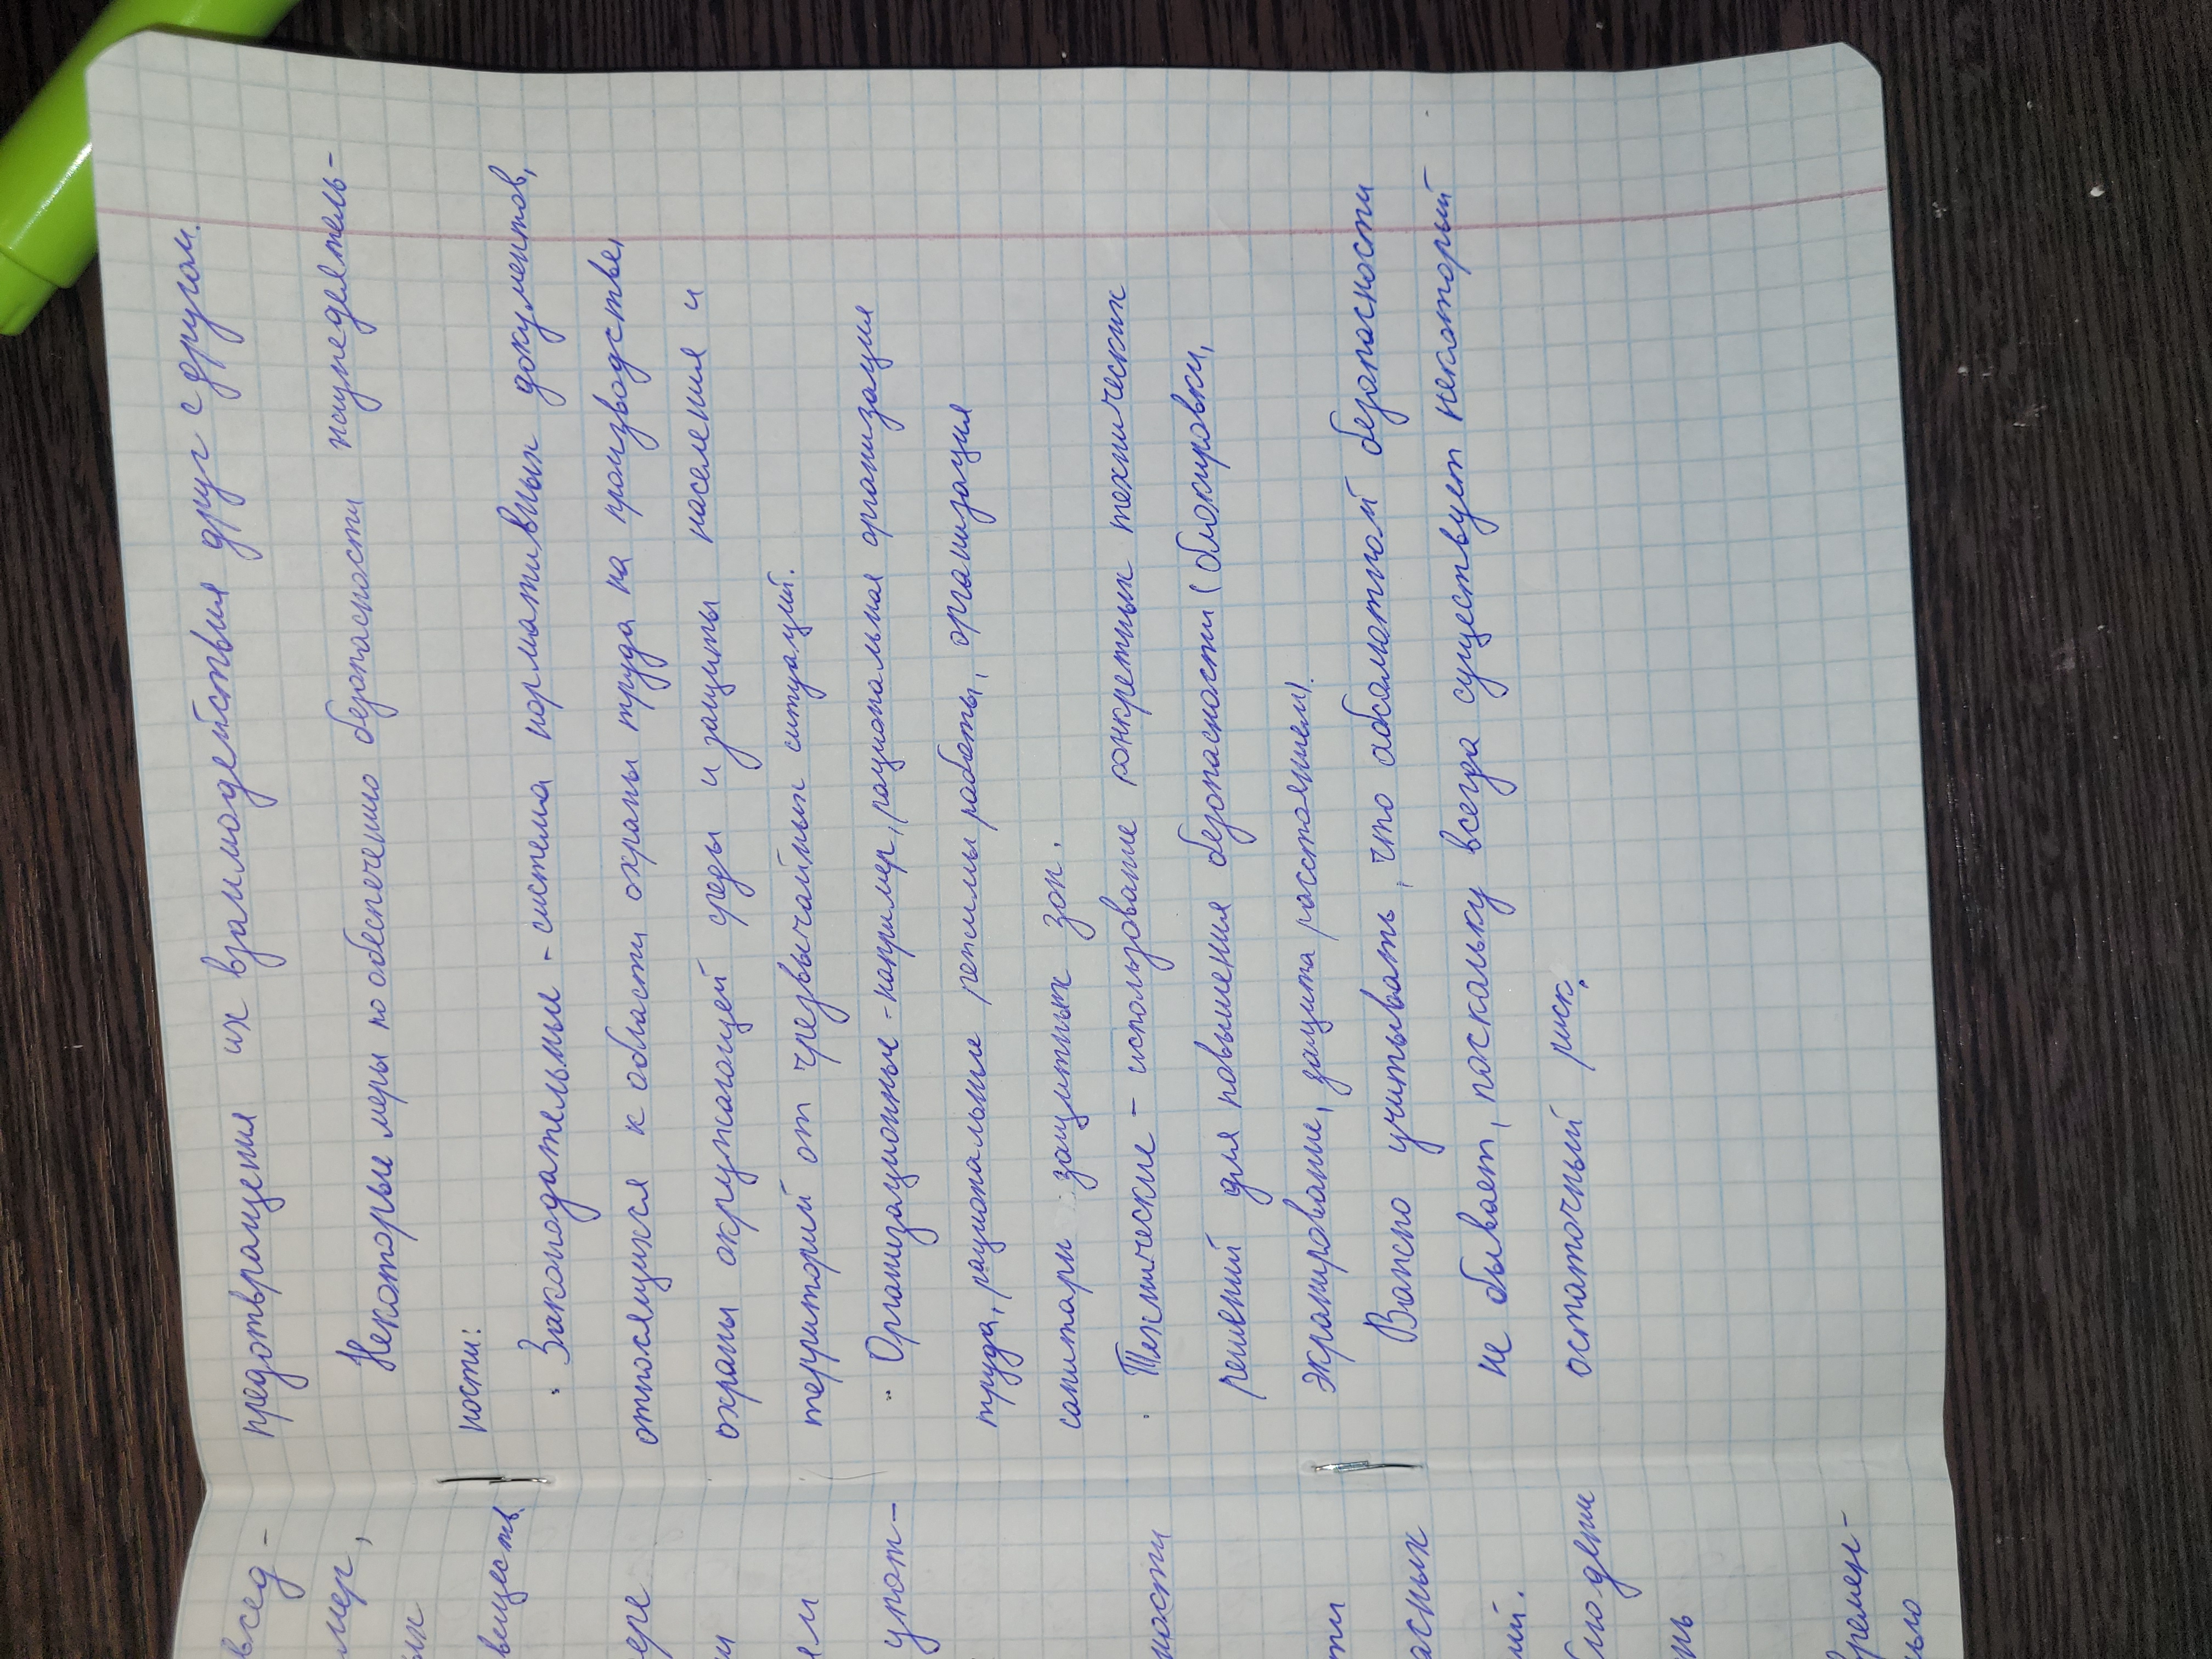 предотвращения их взаимодействия друг с другом.
Некоторые меры по обеспечению безопасности жизнедеятель-
ности:
· Законодательные - система нормативных документов,
относящихся к области охраны труда на производстве,
охраны окружающей среды и защиты населения и
территорий от чрезвычайных ситуаций.
·· Организационные - например, рациональная организация
труда, рациональные режимы работы, организация
санитарн защитных зон.
· Технические - использование конкретных технических
решений для повышения безопасности (блокировки,
экранирование, защита расстоянием).
Важно учитывать, что абсолютной безопасности
не бывает, поскольку всегда существует некоторый
остаточный риск.
всед-
мер,
ых
веществ
ере
и
ем
упот-
ности
ти
асных
ий.
блюдени
нь
времен-
ью